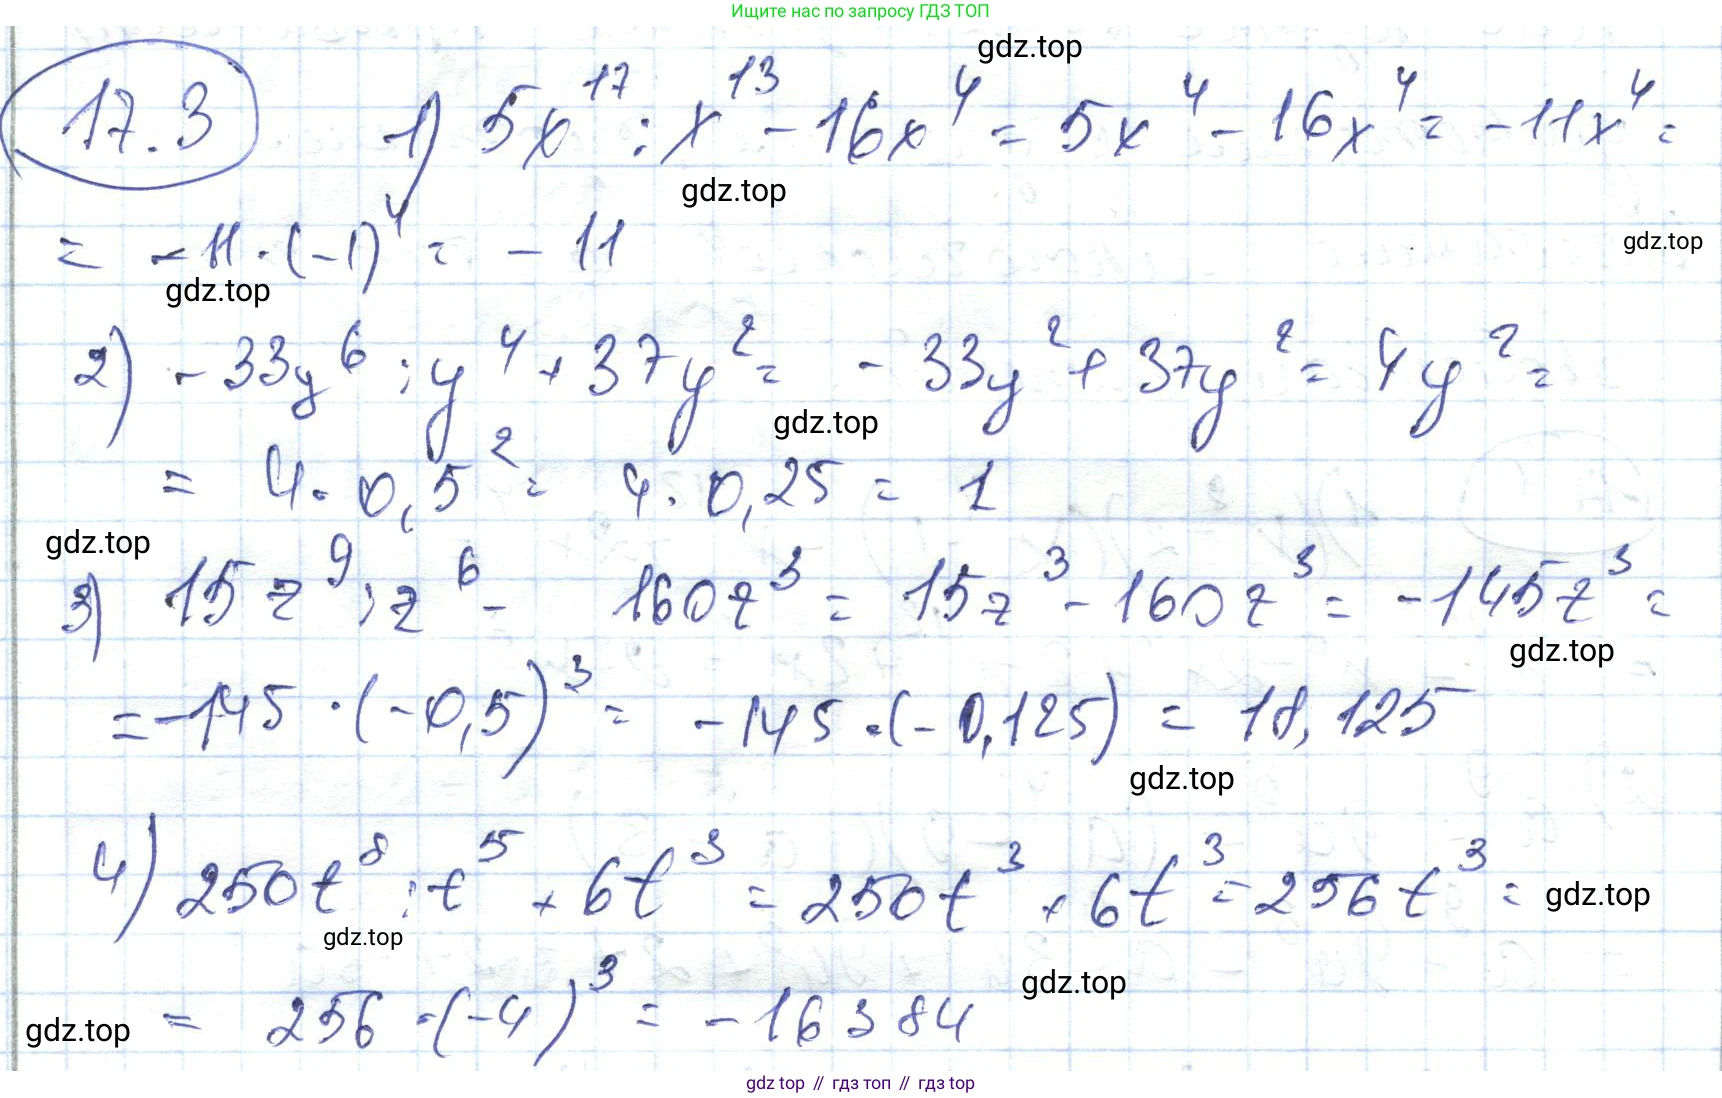 Ищите нас по запросу ГДЗ ТОП
gdz.top
17.3 1) 5x¹⁷ : x¹³ - 16x⁴ = 5x⁴ - 16x⁴ = -11x⁴ =
gdz.top
= -11 · (-1)⁴ = -11
gdz.top
gdz.top
2) -33y⁶ : y⁴ + 37y² = -33y² + 37y² = 4y² =
gdz.top
= 4 · 0,5² = 4 · 0,25 = 1
gdz.top
3) 15z⁹ : z⁶ - 160z³ = 15z³ - 160z³ = -145z³ =
gdz.top
= -145 · (-0,5)³ = -145 · (-0,125) = 18,125
gdz.top
4) 250t⁸ : t⁵ + 6t³ = 250t³ + 6t³ = 256t³ =
gdz.top
gdz.top
gdz.top
= 256 · (-4)³ = -16384
gdz.top
gdz top // гдз топ // gdz top